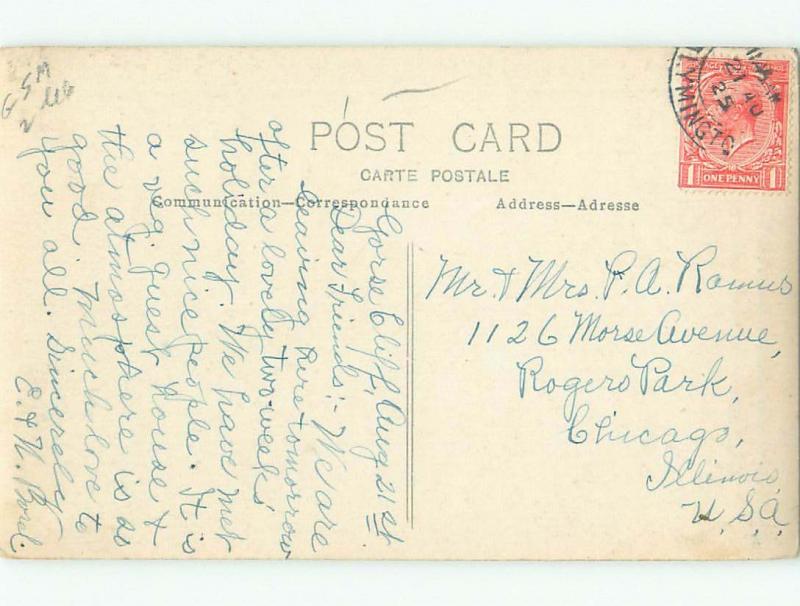 POST CARD
CARTE POSTALE
Communication—Correspondance
Address—Adresse
Gorse Cliff, Aug 21st.
Dear Friends:- We are
leaving here tomorrow
after a lovely two weeks'
holiday. We have met
such nice people. It is
a veg. guest house &
the atmosphere is as
good. Much love to
you all. Sincerely
E. & N.
Mr. & Mrs. P. A. Ramus
1126 Morse Avenue,
Rogers Park,
Chicago,
Illinois,
U.S.A.
LYMINGTO
21 AU
25
1 ONE PENNY 1